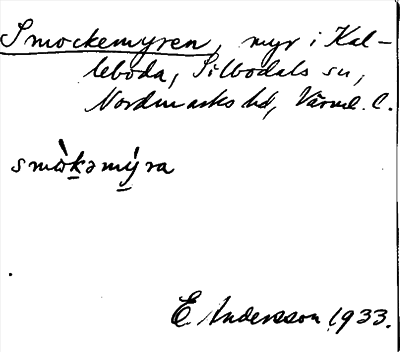 Smockemyren, myr i Kal-
leboda, Silbodals sn,
Nordmarks hd, Värml. l.
smὼkəmýra
E Andersson 1933.